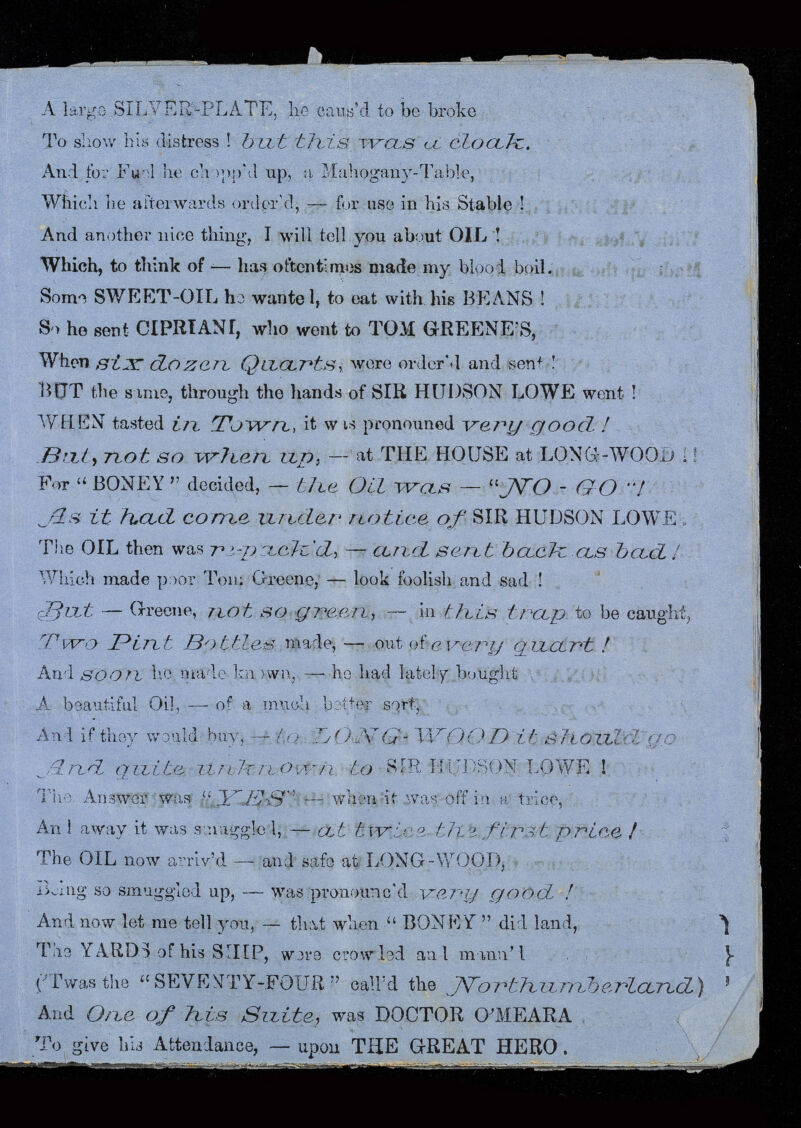 A large SILVER-PLATE, he caus'd to be broke
To show his distress ! but this was a cloak.
And for Fuel he chopp'd up, a Mahogany-Table,
Which he afterwards order'd, — for use in his Stable !
And another nice thing, I will tell you about OIL !
Which, to think of — has oftentimes made my blood boil.
Some SWEET-OIL he wanted, to eat with his BEANS !
So he sent CIPRIANI, who went to TOM GREENE'S,
When six dozen Quarts, were order'd and sent !
BUT the same, through the hands of SIR HUDSON LOWE went !
WHEN tasted in Town, it was pronouned very good !
But, not so when up, — at THE HOUSE at LONG-WOOD !!
For “ BONEY ” decided, — the Oil was — “ NO - GO ”!
As it had come under notice of SIR HUDSON LOWE.
The OIL then was re-pack'd, — and sent back as bad !
Which made poor Tom Greene, — look foolish and sad !
But — Greene, not so green, — in this trap to be caught,
Two Pint Bottles made, — out of every quart !
And soon he made known, — he had lately bought
A beautiful Oil, — of a much better sort,
And if they would buy, — to LONG-WOOD it should go
And quite unknown to SIR HUDSON LOWE !
The Answer was “ YES ” — when it was off in a trice,
And away it was smuggled, — at twice the first price !
The OIL now arriv'd — and safe at LONG-WOOD,
Being so smuggled up, — was pronounc'd very good !
And now let me tell you, — that when “ BONEY ” did land,
The YARDS of his SHIP, were crowded and mann'd
('Twas the “ SEVENTY-FOUR ” call'd the Northumberland)
And One of his Suite, was DOCTOR O'MEARA
To give his Attendance, — upon THE GREAT HERO.